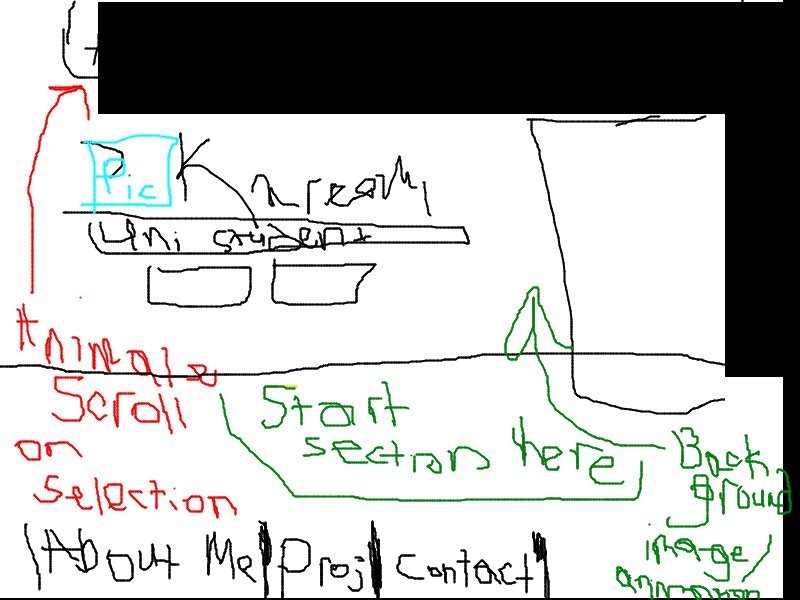 Pic
Uni student
Animate
Scroll
on
Selection
Start
section here
Back
ground
image
About Me
Proj
Contact